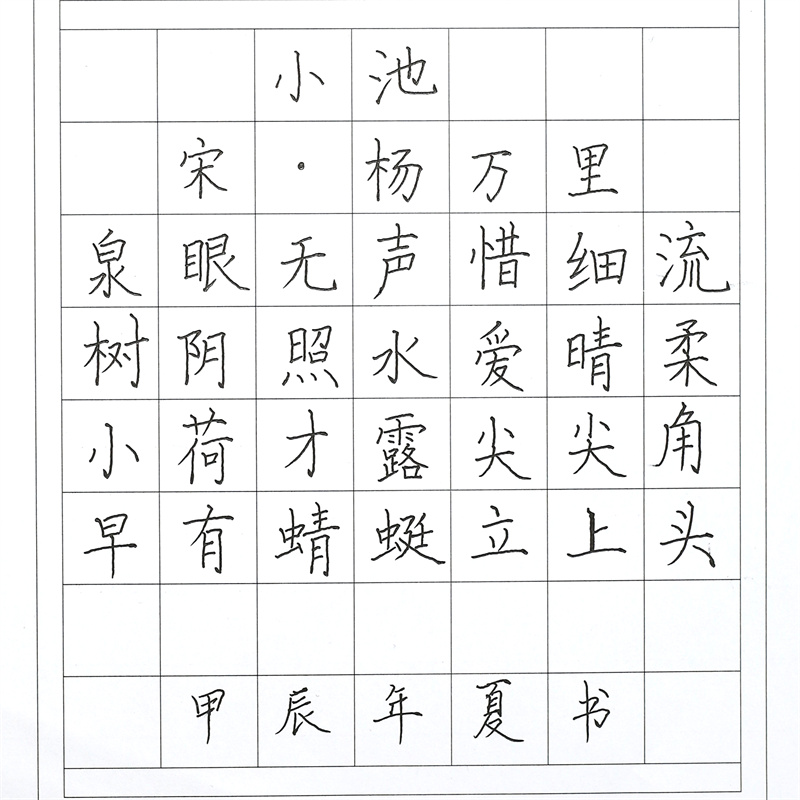 小池
宋·杨万里
泉眼无声惜细流
树阴照水爱晴柔
小荷才露尖尖角
早有蜻蜓立上头
甲辰年夏书